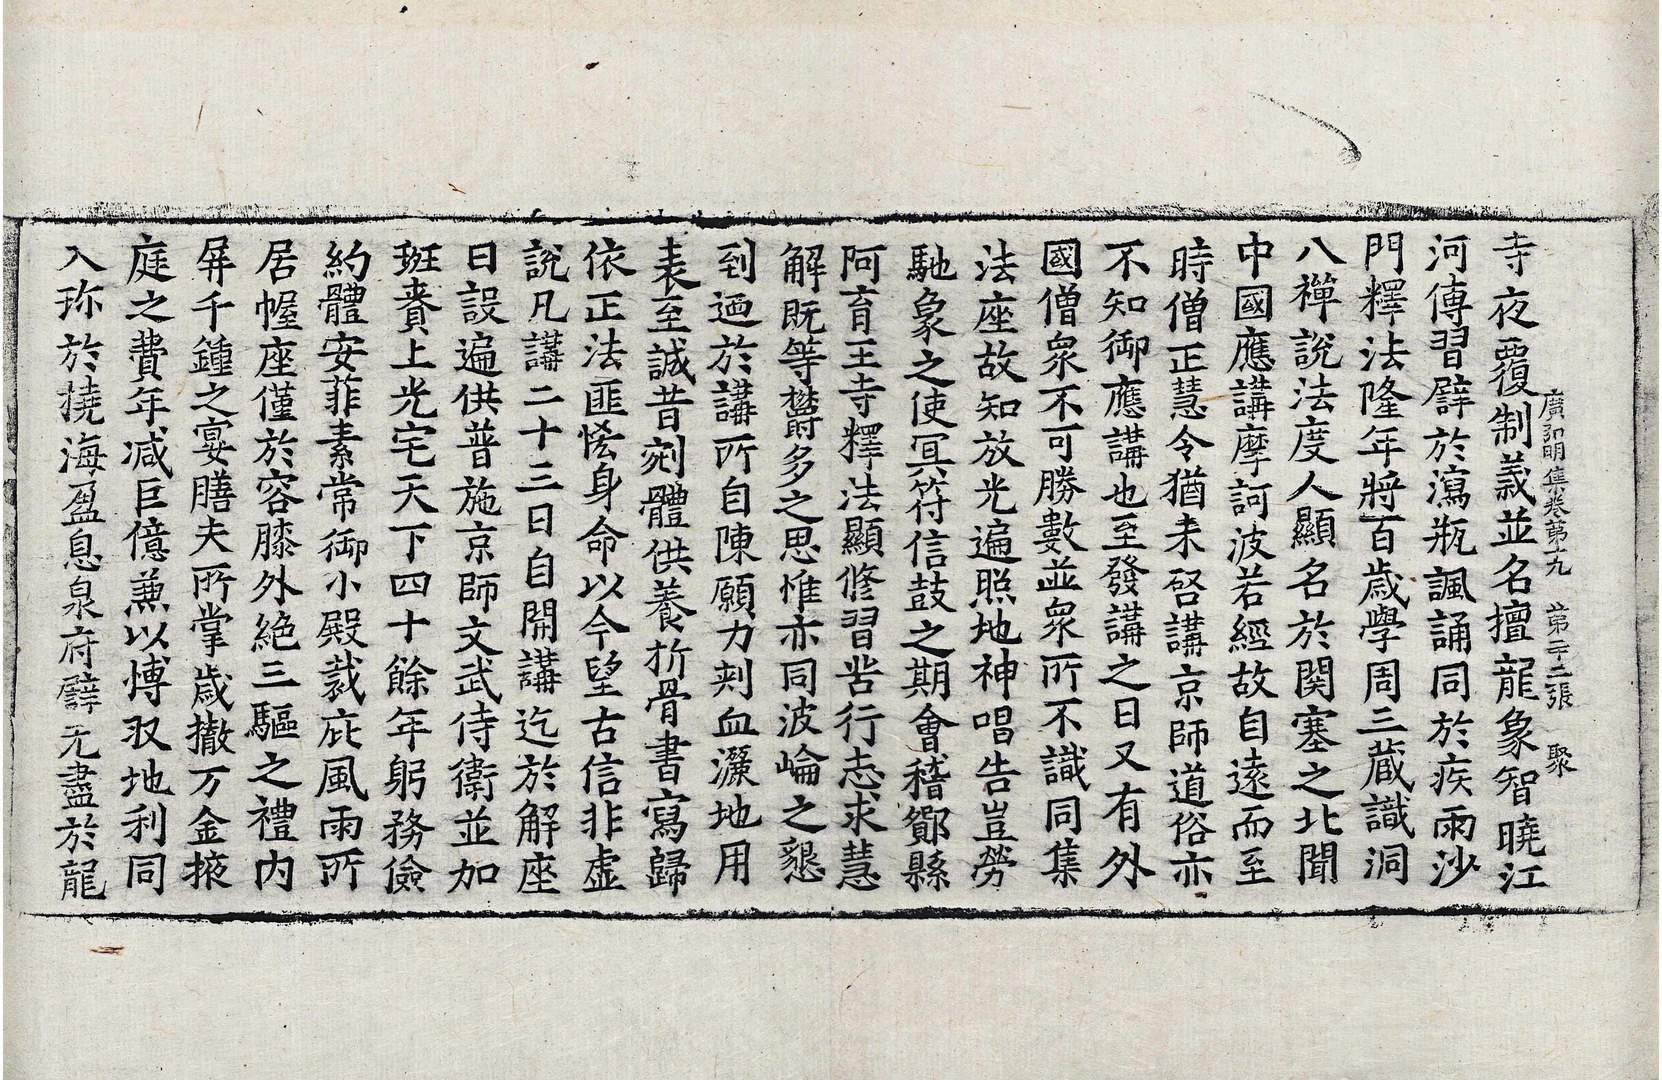 廣弘明集卷第十九　第二十三張　聚
寺夜覆制義並名擅龍象智曉江
河傳習譬於瀉瓶諷誦同於疾雨沙
門釋法隆年將百歲學周三藏識洞
八禪說法度人顯名於関塞之北聞
中國應講摩訶波若經故自遠而至
時僧正慧令猶未啓講京師道俗亦
不知御應講也至發講之日又有外
國僧衆不可勝數並衆所不識同集
法座故知放光遍照地神唱告豈勞
馳象之使冥符信鼓之期會稽鄮縣
阿育王寺釋法顯修習苦行志求慧
解既等欝多之思惟亦同波崘之懇
到迺於講所自陳願力刺血灑地用
表至誠昔剜體供養折骨書寫歸
依正法匪悋身命以今望古信非虛
說凡講二十三日自開講迄於解座
日設遍供普施京師文武侍衛並加
班賚上光宅天下四十餘年躬務儉
約體安菲素常御小殿裁庇風雨所
居幄座僅於容膝外絶三驅之禮內
屏千鍾之宴膳夫所掌歲撤万金掖
庭之費年減巨億兼以博収地利同
入珎於撓海盈息泉府譬无盡於龍